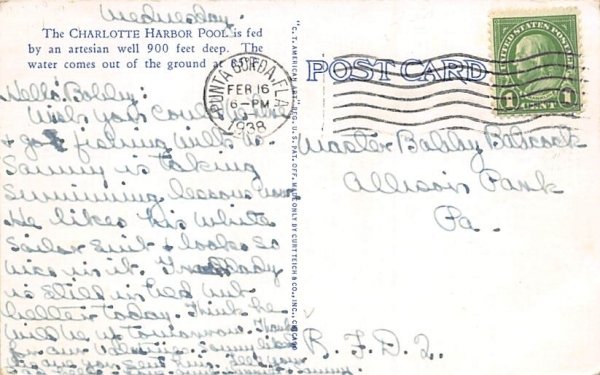 Wednesday.
The CHARLOTTE HARBOR POOL is fed
by an artesian well 900 feet deep. The
water comes out of the ground at
POST CARD
PUNTA GORDA, FLA.
FEB 16
6-PM
1938
UNITED STATES POSTAGE
1 CENT 1
"C. T. AMERICAN ART" REG. U. S. PAT. OFF. MADE ONLY BY CURT TEICH & CO., INC., CHICAGO
Hello Bobby:
Wish you could
& go fishing with us.
Sammy is taking
Swimming lessons now
He likes his white
Sailor Suit & looks so
nice in it.
is still in bed but
better today. Think he
will be up tomorrow. Thanks
for our Valentine. Sammy liked
you sent him. Tell your
Master Bobby Babcock
Allison Park
Pa.
R.F.D. 2.